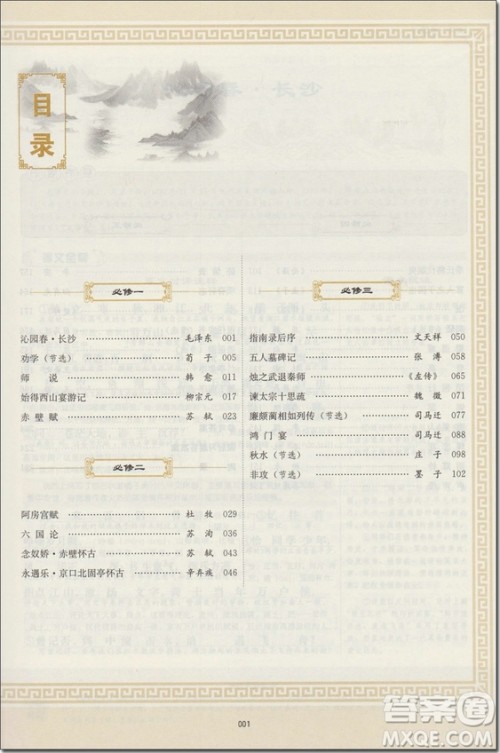 目录
必修一
沁园春·长沙 毛泽东 001
劝学（节选） 荀子 005
师说 韩愈 011
始得西山宴游记 柳宗元 017
赤壁赋 苏轼 023
必修二
阿房宫赋 杜牧 029
六国论 苏洵 036
念奴娇·赤壁怀古 苏轼 043
永遇乐·京口北固亭怀古 辛弃疾 046
必修三
指南录后序 文天祥 050
五人墓碑记 张溥 058
烛之武退秦师 《左传》 065
谏太宗十思疏 魏徵 071
廉颇蔺相如列传（节选） 司马迁 077
鸿门宴 司马迁 088
秋水（节选） 庄子 098
非攻（节选） 墨子 102
001
答案圈
MXQE.COM